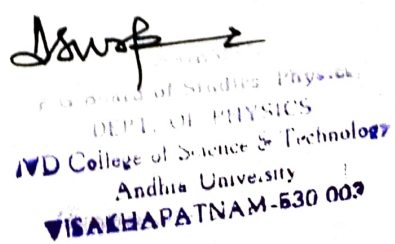 Board of Studies Physics
DEPT. OF PHYSICS
College of Science & Technology
Andhra University
VISAKHAPATNAM-530 003